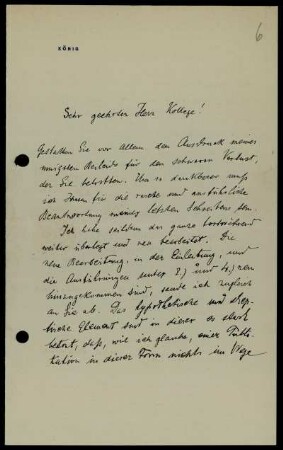 6
KÖNIG
Sehr geehrter Herr Kollege!
Gestatten Sie vor allem den Ausdruck meines
innigsten Beileids für den schweren Verlust,
der Sie betroffen. Um so dankbarer muß
ich Ihnen für die rasche und ausführliche
Beantwortung meines letzten Schreibens sein.
Ich habe seitdem das ganze fortwährend
weiter überlegt und neu bearbeitet. Die
neue Bearbeitung, in der Einleitung, und
die Ausführungen unter 2.) und 4.) neu
hinzugekommen sind, sende ich zugleich
an Sie ab. Das hypothetische und skep-
tische Element sind in dieser so stark
betont, daß, wie ich glaube, einer Publi-
kation in dieser Form nichts im Wege